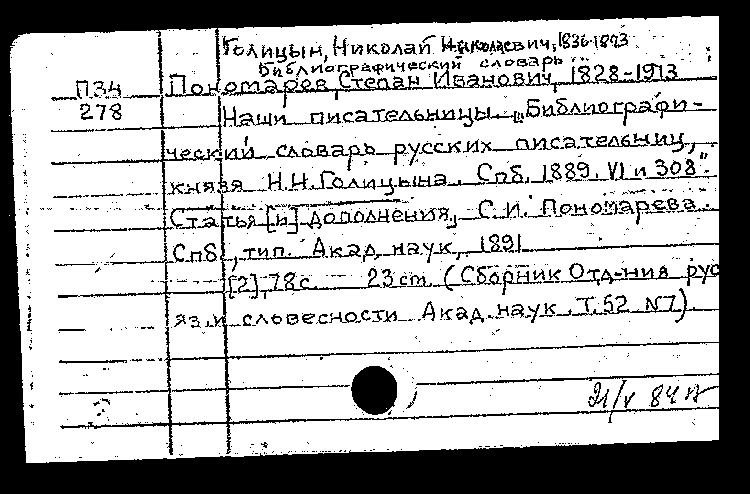 Голицын, Николай Николаевич, 1836-1893
Библиографический словарь...
П34 Пономарев, Степан Иванович, 1828-1913
278 Наши писательницы. „Библиографи-
ческий словарь русских писательниц,
князя Н.Н. Голицына. Спб. 1889. VI и 308".
Статья [и] дополнения, С.И. Пономарева.
Спб., тип. Акад. наук, 1891
[2], 78 с. 23 cm. (Сборник Отд-ния рус
яз. и словесности Акад. наук. Т. 52 N7)
21/V 84